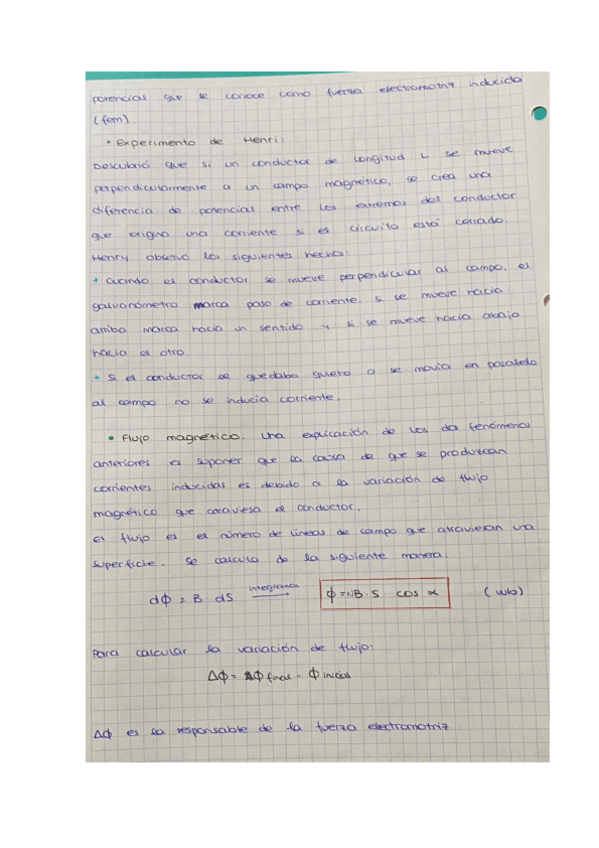 potencial que se conoce como fuerza electromotriz inducida
(fem)
• Experimento de Henri:
Descubrió que si un conductor de longitud L se mueve
perpendicularmente a un campo magnético, se crea una
diferencia de potencial entre los extremos del conductor
que origina una corriente si el circuito está cerrado.
Henry observó los siguientes hechos:
* Cuando el conductor se mueve perpendicular al campo, el
galvanómetro marca paso de corriente. Si se mueve hacia
arriba marca hacia un sentido y si se mueve hacia abajo
hacia el otro.
* Si el conductor se quedaba quieto o se movía en paralelo
al campo no se inducia corriente.
• Flujo magnético. Una explicación de los dos fenómenos
anteriores es suponer que la causa de que se produzcan
corrientes inducidas es debido a la variación de flujo
magnético que atraviesa el conductor.
El flujo es el número de líneas de campo que atraviesan una
superficie. Se calcula de la siguiente manera.
dΦ = B dS integramos → Φ = NB · S · cos α (wb)
Para calcular la variación de flujo:
ΔΦ = Φ final - Φ inicial
ΔΦ es la responsable de la fuerza electromotriz